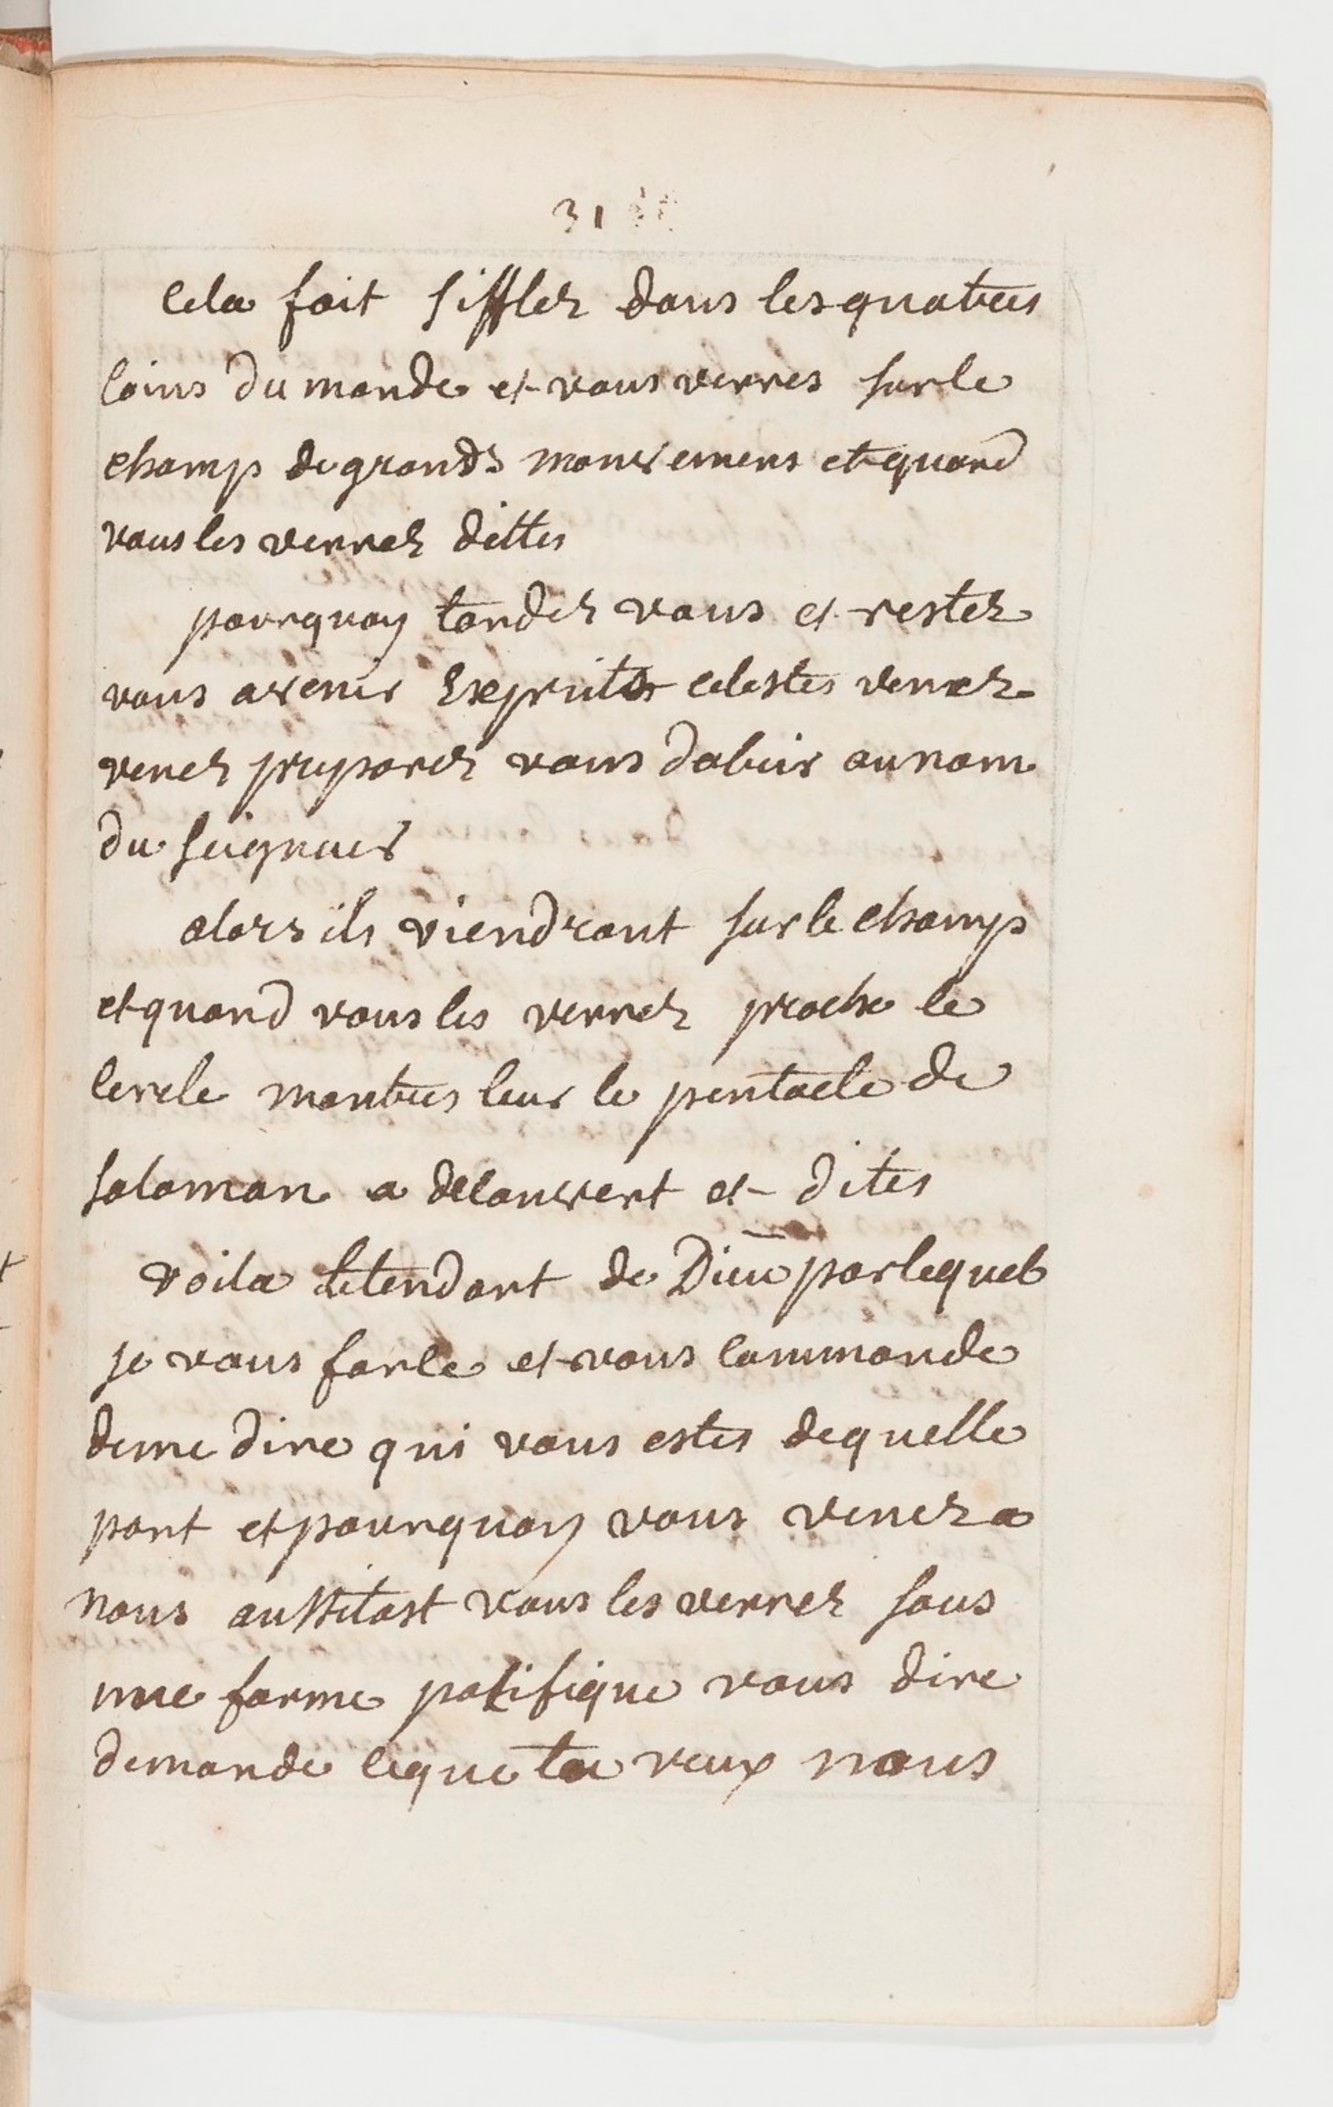 31
Cela fait sifflez dans les quatres
coins du monde et vous verres sur le
champ de grands mouvemens et quand
vous les verrez dittes
pourquoy tardez vous et restez
vous avenir Esprits celestes venez
venez preparez vous dobeir au nom
du seigneur
alors ils viendront sur le champ
et quand vous les verrez proche le
cercle montres leur le pentacle de
salomon a decouvert et dites
voila letendart de Dieu par lequel
je vous parle et vous commande
de me dire qui vous estes de quelle
part et pourquoy vous venez a
nous aussitost vous les verrez sous
une forme pacifique vous dire
demande ce que tu veux nous